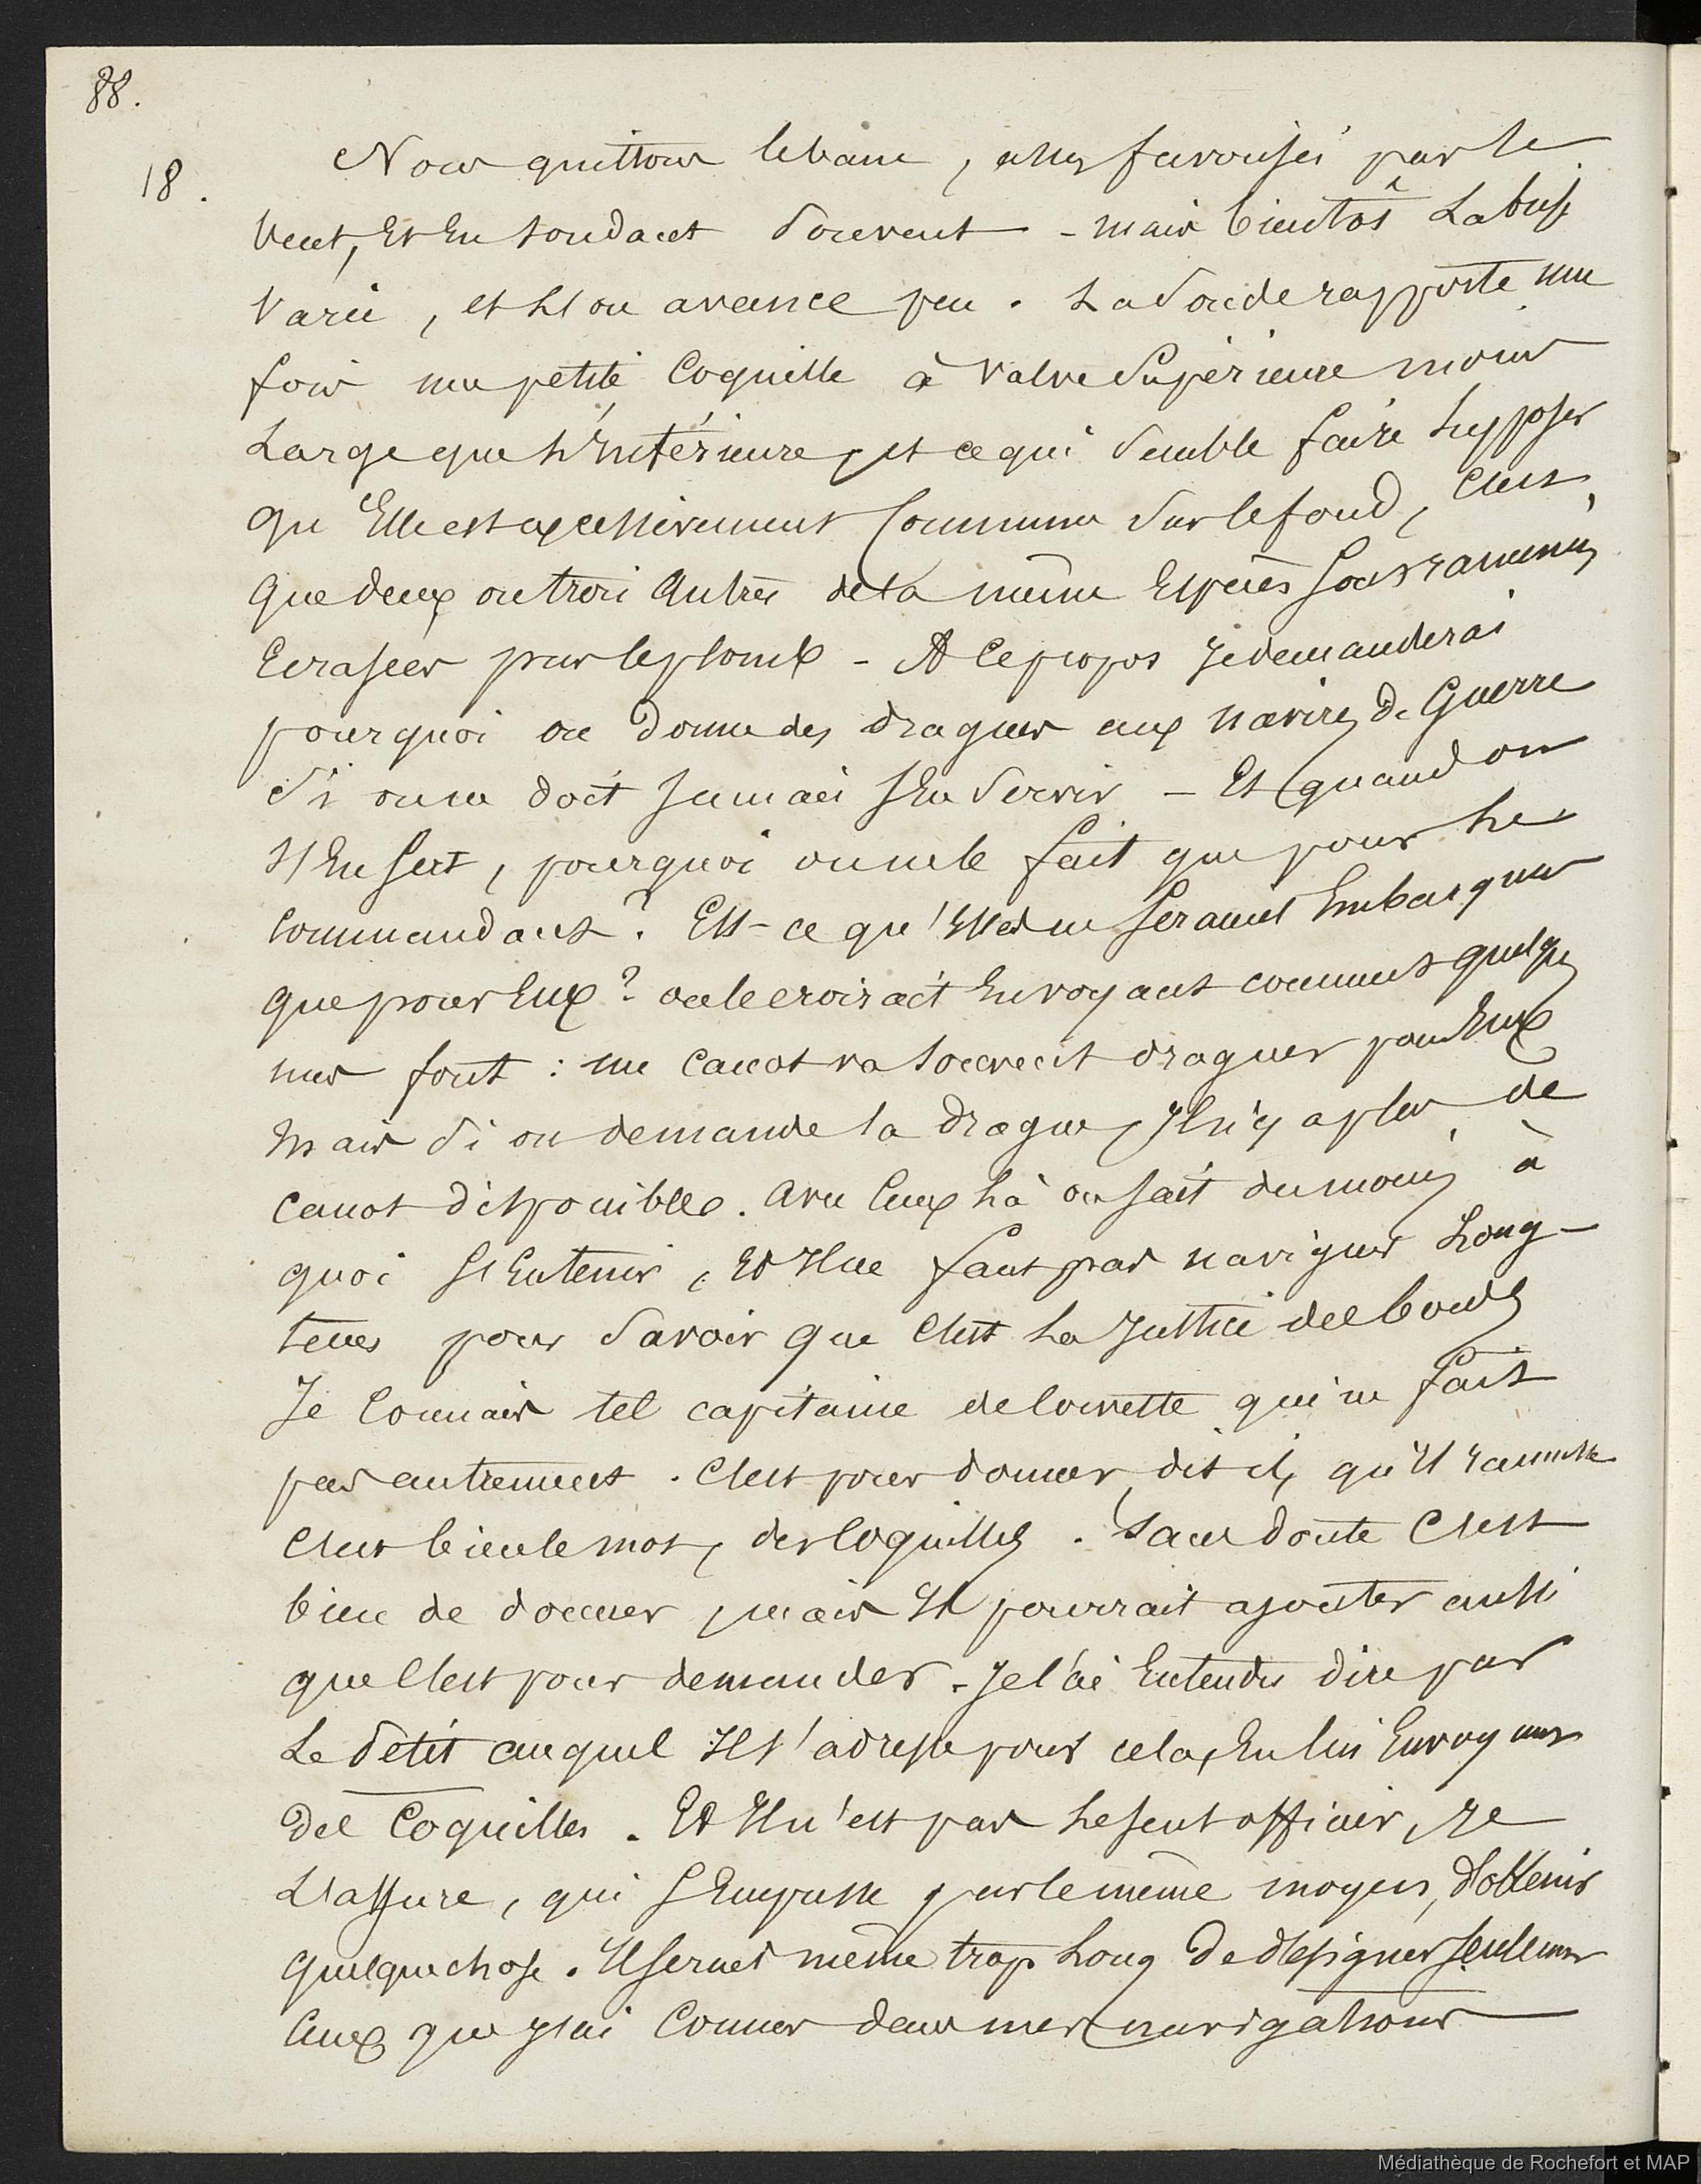 88.
18. Nous quittons le banc, assez favorisés par le
vent, Et En sondant souvent - mais bientôt La brise
varie, et l'on avance peu. La sonde rapporte une
fois une petite Coquille à valve supérieure moins
Large que L'Intérieure, et ce qui semble faire supposer
qu'Elle est excessivement Commune sur le fond, C'est
que deux ou trois Autres de la même Espèces sont ramenées
Ecrasées par le plomb - A Ce propos Je demanderai
pourquoi on donne des dragues aux navires de Guerre
si on ne doit jamais s'En servir - Et quand on
s'En sert, pourquoi on ne le fait que pour Les
Commandants? Est-ce qu'Elles ne seraient Embarquées
que pour Eux? on le croirait En voyant comment quelques
uns font: un canot va souvent draguer pour Eux
mais si on demande la drague, Il n'y a plus de
canot disponible. Avec Ceux là on sait du moins à
quoi s'En tenir, Et Il ne faut pas naviguer Long-
tems pour savoir que C'est La Justice del bordo
Je Connais tel capitaine de corvette qui ne fait
pas autrement. C'est pour donner, dit il, qu'Il ramasse
C'est bien le mot, des Coquilles. Sans doute C'est
bien de donner, mais Il pourrait ajouter aussi
que C'est pour demander. Je l'ai Entendu dire par
Le Petit auquel Il s'adresse pour cela, En lui Envoyant
des Coquilles. Et Il n'est pas Le seul officier, Je
L'assure, qui s'Empresse par le même moyen, d'obtenir
quelque chose. Il serait même trop Long de désigner seulement
Ceux que J'ai Connus dans mes navigations
Médiathèque de Rochefort et MAP